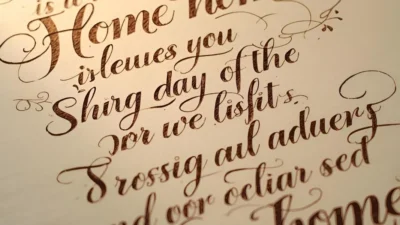 is a
Home hom
islewes you
Shirg day of the
or we lisfits
Srossig aul aduerz
nd oor ocliar sed
home